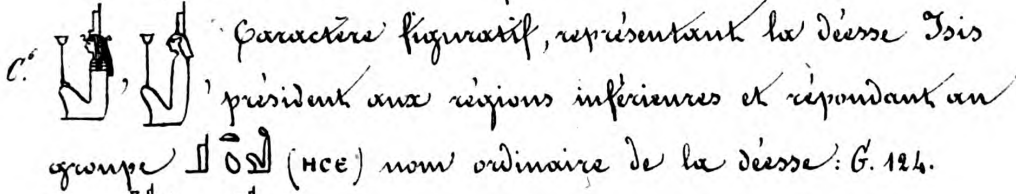 C.ᵗ 𓁥, 𓁥, Caractère figuratif, représentant la déesse Isis
président aux régions inférieures et répondant au
groupe 𓊨𓏏𓆇𓁐 (ⲎⲤⲈ) nom ordinaire de la déesse : G. 124.